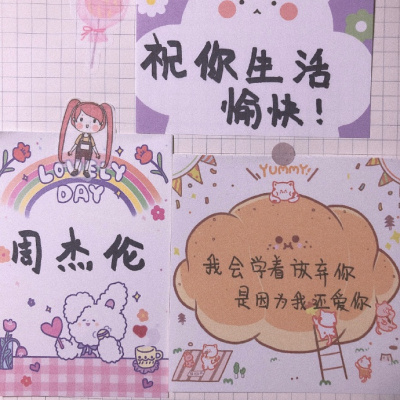 祝你生活
愉快！
LOVELY
DAY
周杰伦
YUMMY!
我会学着放弃你
是因为我还爱你